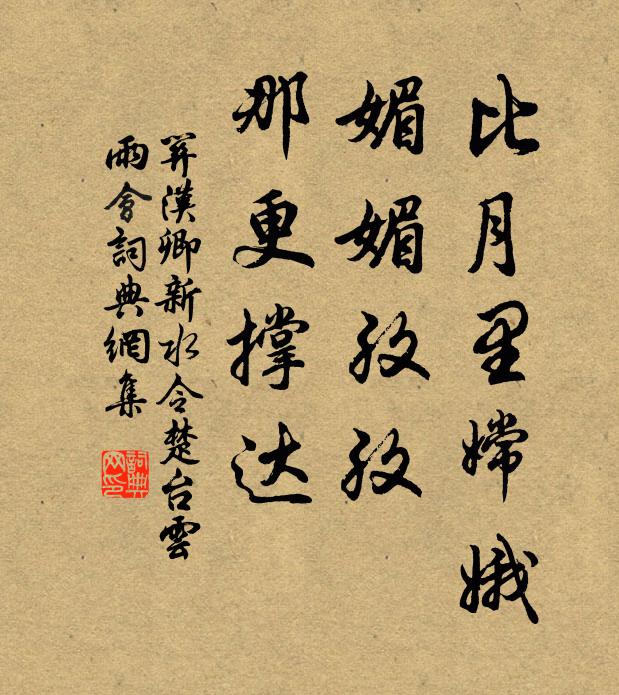 比月里嫦娥
媚媚孜孜
那更撑达
關漢卿新水令楚台雲
雨會詞典網集
詞典
网印